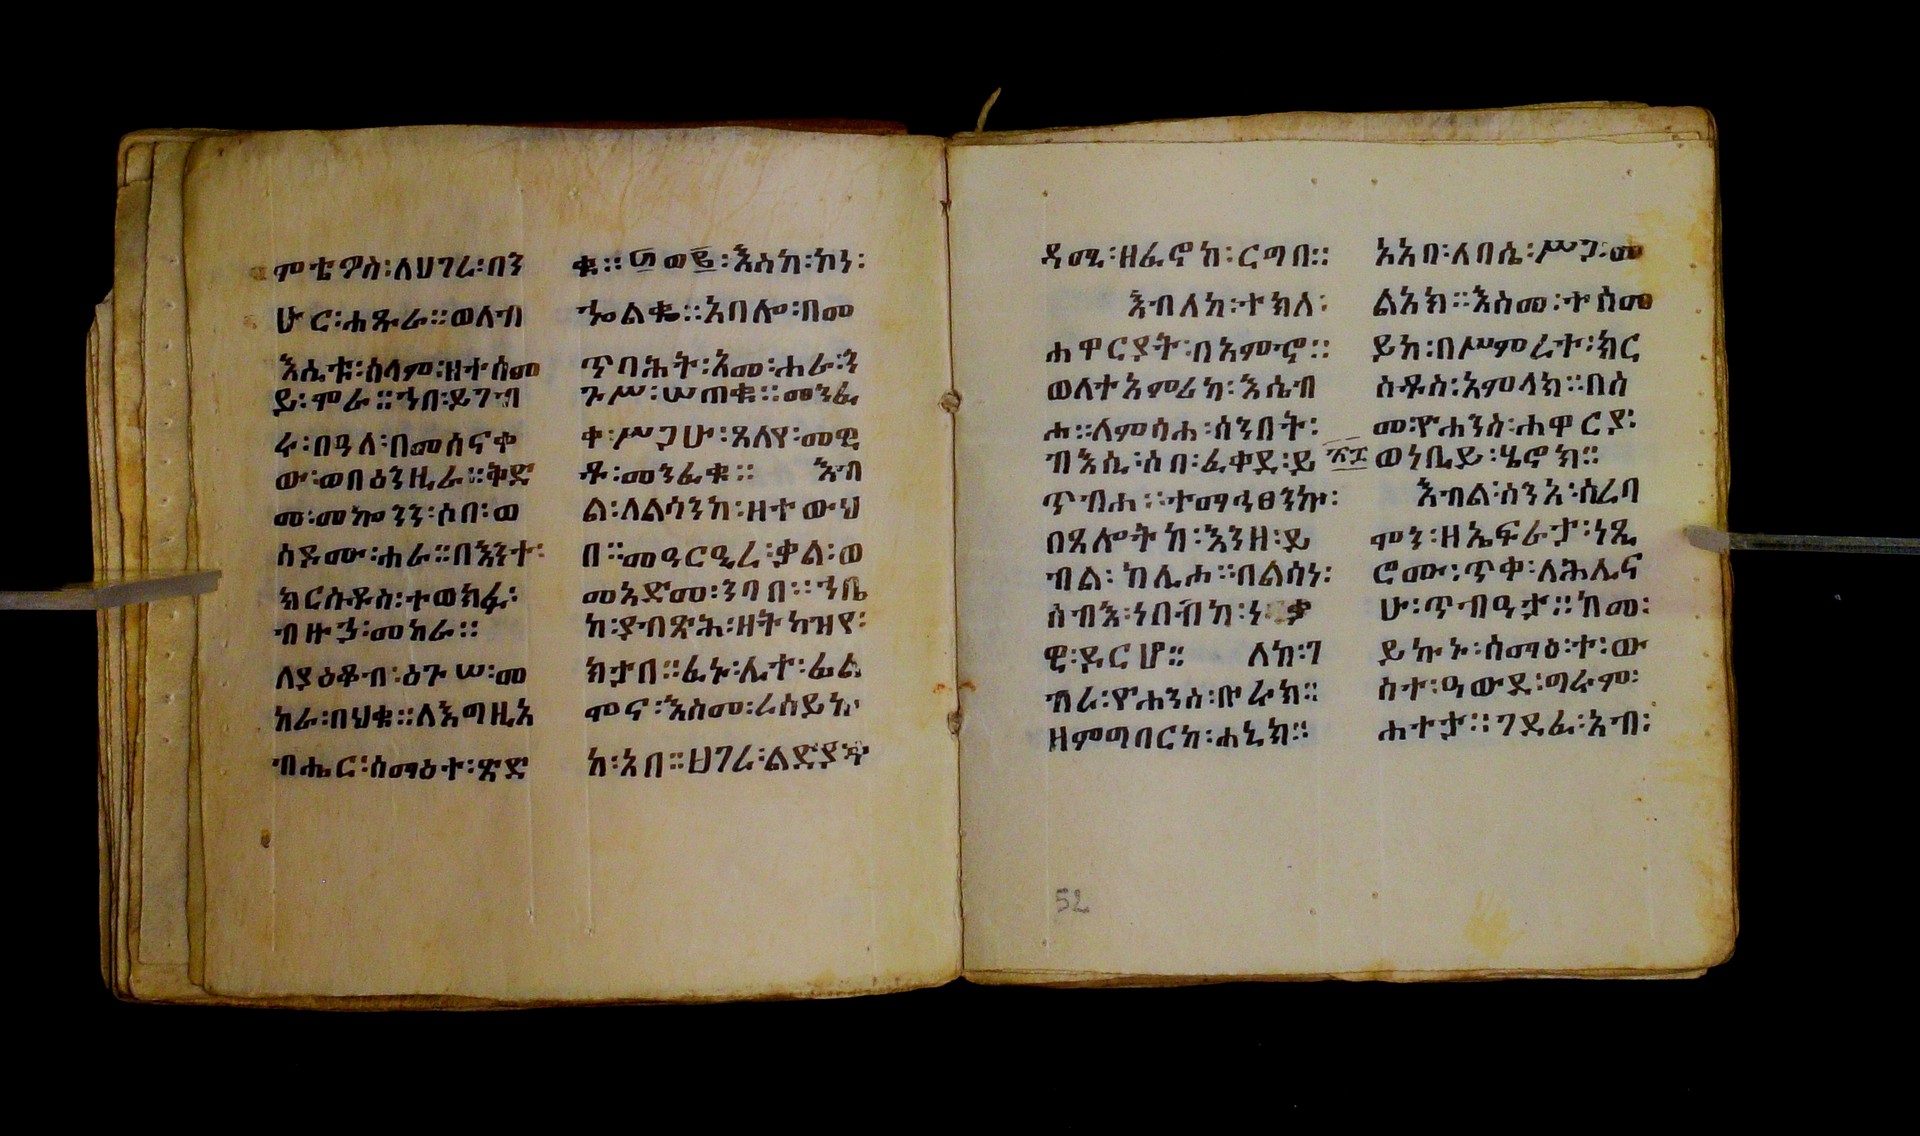 ምቲዎስ፡ለሀገረ፡በን
ሁር፡ሐጹራ።ወለብ
እሲቱ፡ሰላም፡ዘተሰመ
ይ፡ሞራ።ኀበ፡ይገብ
ሩ፡በዓለ፡በመሰናቀ
ው፡ወበዕንዚራ።ቅድ
መ፡መኰንን፡ሶበ፡ወ
ሰድሙ፡ሐራ።በእንተ፡
ክርስቶስ፡ተወክፈ፡
ብዙኃ፡መከራ።
ለያዕቆብ፡ዕጉሠ፡መ
ከራ፡በህቁ።ለእግዚአ
ብሔር፡ሰማዕተ፡ጽድ
ቁ።፶ወ፪፡እስከ፡ኮነ፡
ኈልቈ።አባሎ፡በመ
ጥባሕት፡አመ፡ሐራ፡ን
ጉሥ፡ሠጠቁ።መንፈ
ቀ፡ሥጋሁ፡ጸለየ፡መዊ
ቶ፡መንፈቁ። እብ
ል፡ለልሳንከ፡ዘተውህ
በ።መዓርዒረ፡ቃል፡ወ
መአድመ፡ንባበ።ኀቤ
ከ፡ያብጽሕ፡ዘትካዝየ፡
ክታበ።ፈኑ፡ሊተ፡ፊል
ሞና፡እስመ፡ረሰይኩ
ከ፡አበ።ሀገረ፡ልድያ
ዳሚ፡ዘፈኖከ፡ርግበ።
እብለከ፡ተክለ፡
ሐዋርያት፡በአምኖ።
ወለተአምሪከ፡እሴብ
ሐ።ለምሳሐ፡ሰንበት፡
ብእሲ፡ሶበ፡ፈቀደ፡ይ
ጥብሐ።ተማኅፀንኩ፡
በጸሎትከ፡እንዘ፡ይ
ብል፡ከሊሐ።በልሳነ፡
ሰብእ፡ነበብከ፡ነ ቃ
ዊ፡ይርሆ። ለከ፡ገ
ኸራ፡ዮሐንስ፡ቡራክ።
ዘምግባርከ፡ሐኒክ።
አአባ፡ለበሴ፡ሥጋ፡መ
ልአክ።እስመ፡ተሰመ
ይከ፡በሥምረተ፡ክር
ስቶስ፡አምላክ።በስ
መ፡ዮሐንስ፡ሐዋርያ፡
ወነቢይ፡ሄኖክ።
እብል፡ሰነአ፡ሰረባ
ሞን፡ዘኤፍራታ፡ነጺ
ሮሙ፡ጥቀ፡ለሕሊና
ሁ፡ጥብዓታ።ከመ፡
ይኩኑ፡ሰማዕተ፡ው
ስተ፡ዓውደ፡ግሩም፡
ሐተታ።ገደፈ፡አብ፡
52